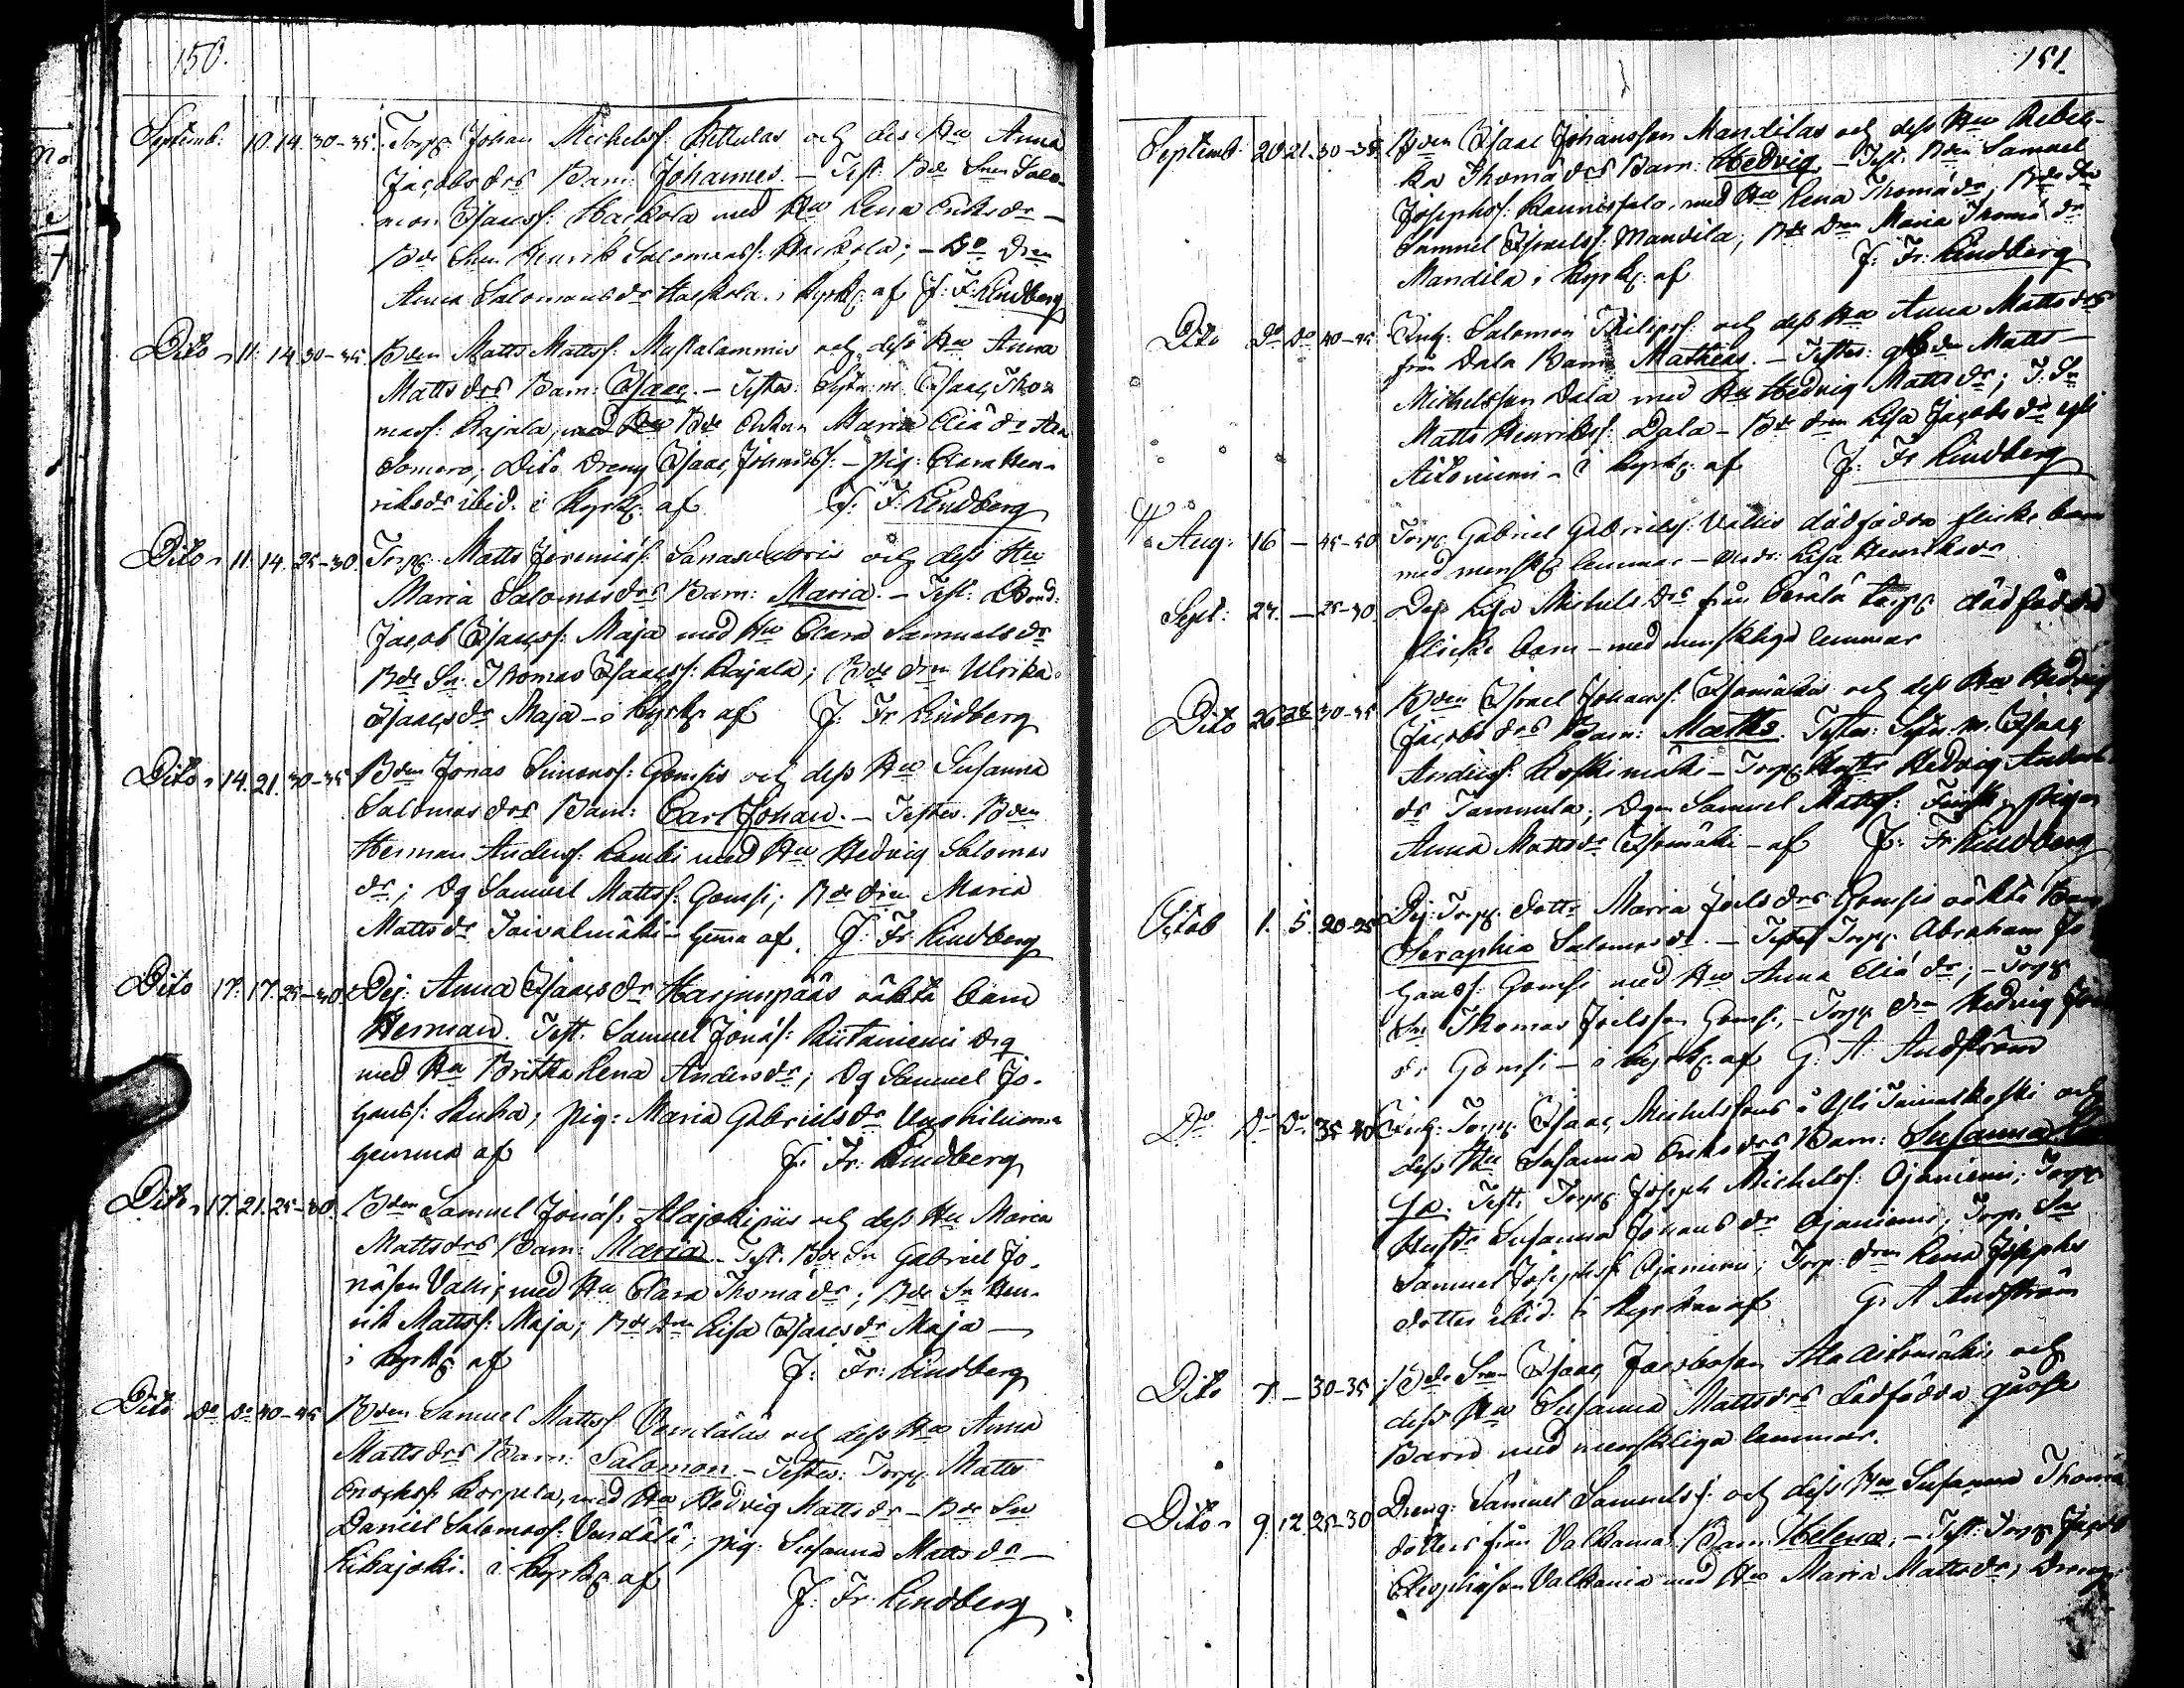 150.
Septemb: 10. 14. 30-35. Torp. Johan Michelss: Kettulas och dess Hu Anna
Jacobs drs Barn: Johannes. - Test: Bde Snen Salo-
mon Isaacss: Hackola med Hu Lena Eriksdr -
Bde Snen Henrik Salomonss: Hackola; - Do Dren
Anna Salomonsdr Hackola. i Kyrk: af J: F: Lindberg
Dito 11. 14. 30-35. Bden Matts Mattss: Mustalammis och dess Hu Anna
Mattsdrs Barn: Isaac. - Testes: Isaac Tho-
mass: Rajala, med Bde Enkan Maria Eliædr
Somero; Dito Dreng Isaac Johanss: - Pig: Clara Hen-
riksdr ibid. i Kyrk: af J: F: Lindberg
Dito 11. 14. 25-30. Torp. Matts Jeremiæs: och dess Hu
Maria Salomonsdrs Barn: Maria. - Test: Bond:
Jacob Isaacss: Maja med Hu Clara Samuelsdr
Bde Sn: Thomas Isaacss: Rajala; Bde drn Ulrika
Isaacsdr Maja - i Kyrk: af J: Fr Lindberg
Dito 14. 21. 30-35 Bden Jonas Simonss: Gomsis och dess Hu Susanna
Salomonsdrs Barn: Carl Johan. - Testes. Bden
Herman Anderss: med Hu Hedvig Salomos
dr; Dg Samuel Mattss: Gomsi; Bde dren Maria
Mattsdr Taivalmäki - hema af. J: Fr Lindberg
Dito 17. 17. 25-30 Dej: Anna Isaacsdr Harjunpääs oäkta barn
Herman. Test. Samuel Jonæs: Riitaniemi drg
med Hu Britha Lena Andersdr; Dg Samuel Jo-
hanss: Kuha; pig: Maria Gabrielsdr
hemma af J: Fr: Lindberg
Dito 17. 21. 25-30. Bden Samuel Jonæs: Alajokipiis och dess Hu Maria
Mattsdrs Barn: Maria. Test. Bde Sn Gabriel Jo-
næson Valli; med Hu Clara Thomædr; Bde Sn Hen-
rik Mattss: Maja; Bde Drn Lisa Isaacsdr Maja -
i Kyrk: af J: Fr: Lindberg
Dito Do Do 40-45 Bden Samuel Mattss: Vendäläs och dess Hu Anna
Mattsdrs Barn: Salomon. - Testes: Torp. Matts
Enochss: Korpela, med Hu Hedvig Mattsdr - Bde Sn
Daniel Salomonss: Vendälä; pig: Susanna Mattsdr -
Kihajoki. i Kyrk: af
J: Fr: Lindberg
151.
Septemb: 20 21. 30-35. Bden Isaac Johansson Mandilas och dess Hu Rebec-
ka Thomædrs Barn: Hedvig. - Test. Bden Samuel
Josephss: Kaunisfalo, med Hu Lena Thomædr, Bde Sn
Samuel Israelss: Mandila; Bde Dren Maria Thomædr
Mandila i Kyrk: af J: Fr: Lindberg
Dito Do Do 40-45 Inh: Salomon Philipss: och dess Hu Anna Mattsdrs
från Dala Barn: Mathias. - Testes: Bden Matts
Michelsson Dala med Hu Hedvig Mattsdr; T: Sn
Matts Henrikss: Dala - Bde dren Lisa Jacobsdr
Aitoniemi - i Kyrk: af J: Fr Lindberg
Aug: 16 - 45-50 Torp. Gabriel Gabrielss: Vallis dödfödda flicke barn
med menskl: lemmar - Mod: Lisa Henriksdr
Sept: 24. - 25-30. Dej: Lisa Michelsdrs från Perälä torp. dödfödda
flicke barn - med menskliga lemmar
Dito 26 28 30-35 Bden Israel Johanss: Isomäkis och dess Hu Hedvig
Jacobsdrs Barn: Matts. Testes: Isaac
Anderss: Koskimäki - Torp: Hedvig Anders
dr Tammela; Dgn Samuel Mattss: pigan
Anna Mattsdr Isomäki - af J: Fr Lindberg
Octob 1. 5. 20-25 Dej: Torp. dottr Maria Joelsdrs Gomsis oäkta Barn
Seraphia Salomosdr. - Testes Torp. Abraham Jo
hanss: Gomsi med Hu Anna Eliædr; - Torp.
Sn Thomas Joelsson Gomsi, - Torp. drn Hedvig
dr Gomsi - i Kyrk: af G: A: Andström
Do Do Do 35-40 Inh: Torp. Isaac Michelssons i Yli Taivalkoski och
dess Hu Susanna Eriksdrs Barn: Susanna
Test: Torp. Joseph Michelss: Ojaniemi; Torp.
Hustr Susanna Johansdr Ojaniemi; Torp. Sn
Samuel Josephss: Ojaniemi; Torp: dren Lena Josephs
dotter ibid. i Kyrkan af G: A Andström
Dito 7 - 30-35 Bde Snen Isaac Jacobsson Ala Aitomäkis och
dess Hu Susanna Mattsdrs dödfödda gosse
Barn med menskliga lemmar.
Dito 9 12 25-30 Dreng: Samuel Samuelss: och dess Hu Susanna Thomæ
dotters från Valkama Barn: Helena; - Test: Torp. Jacob
Valkama med Hu Maria Mattsdr; Dreng